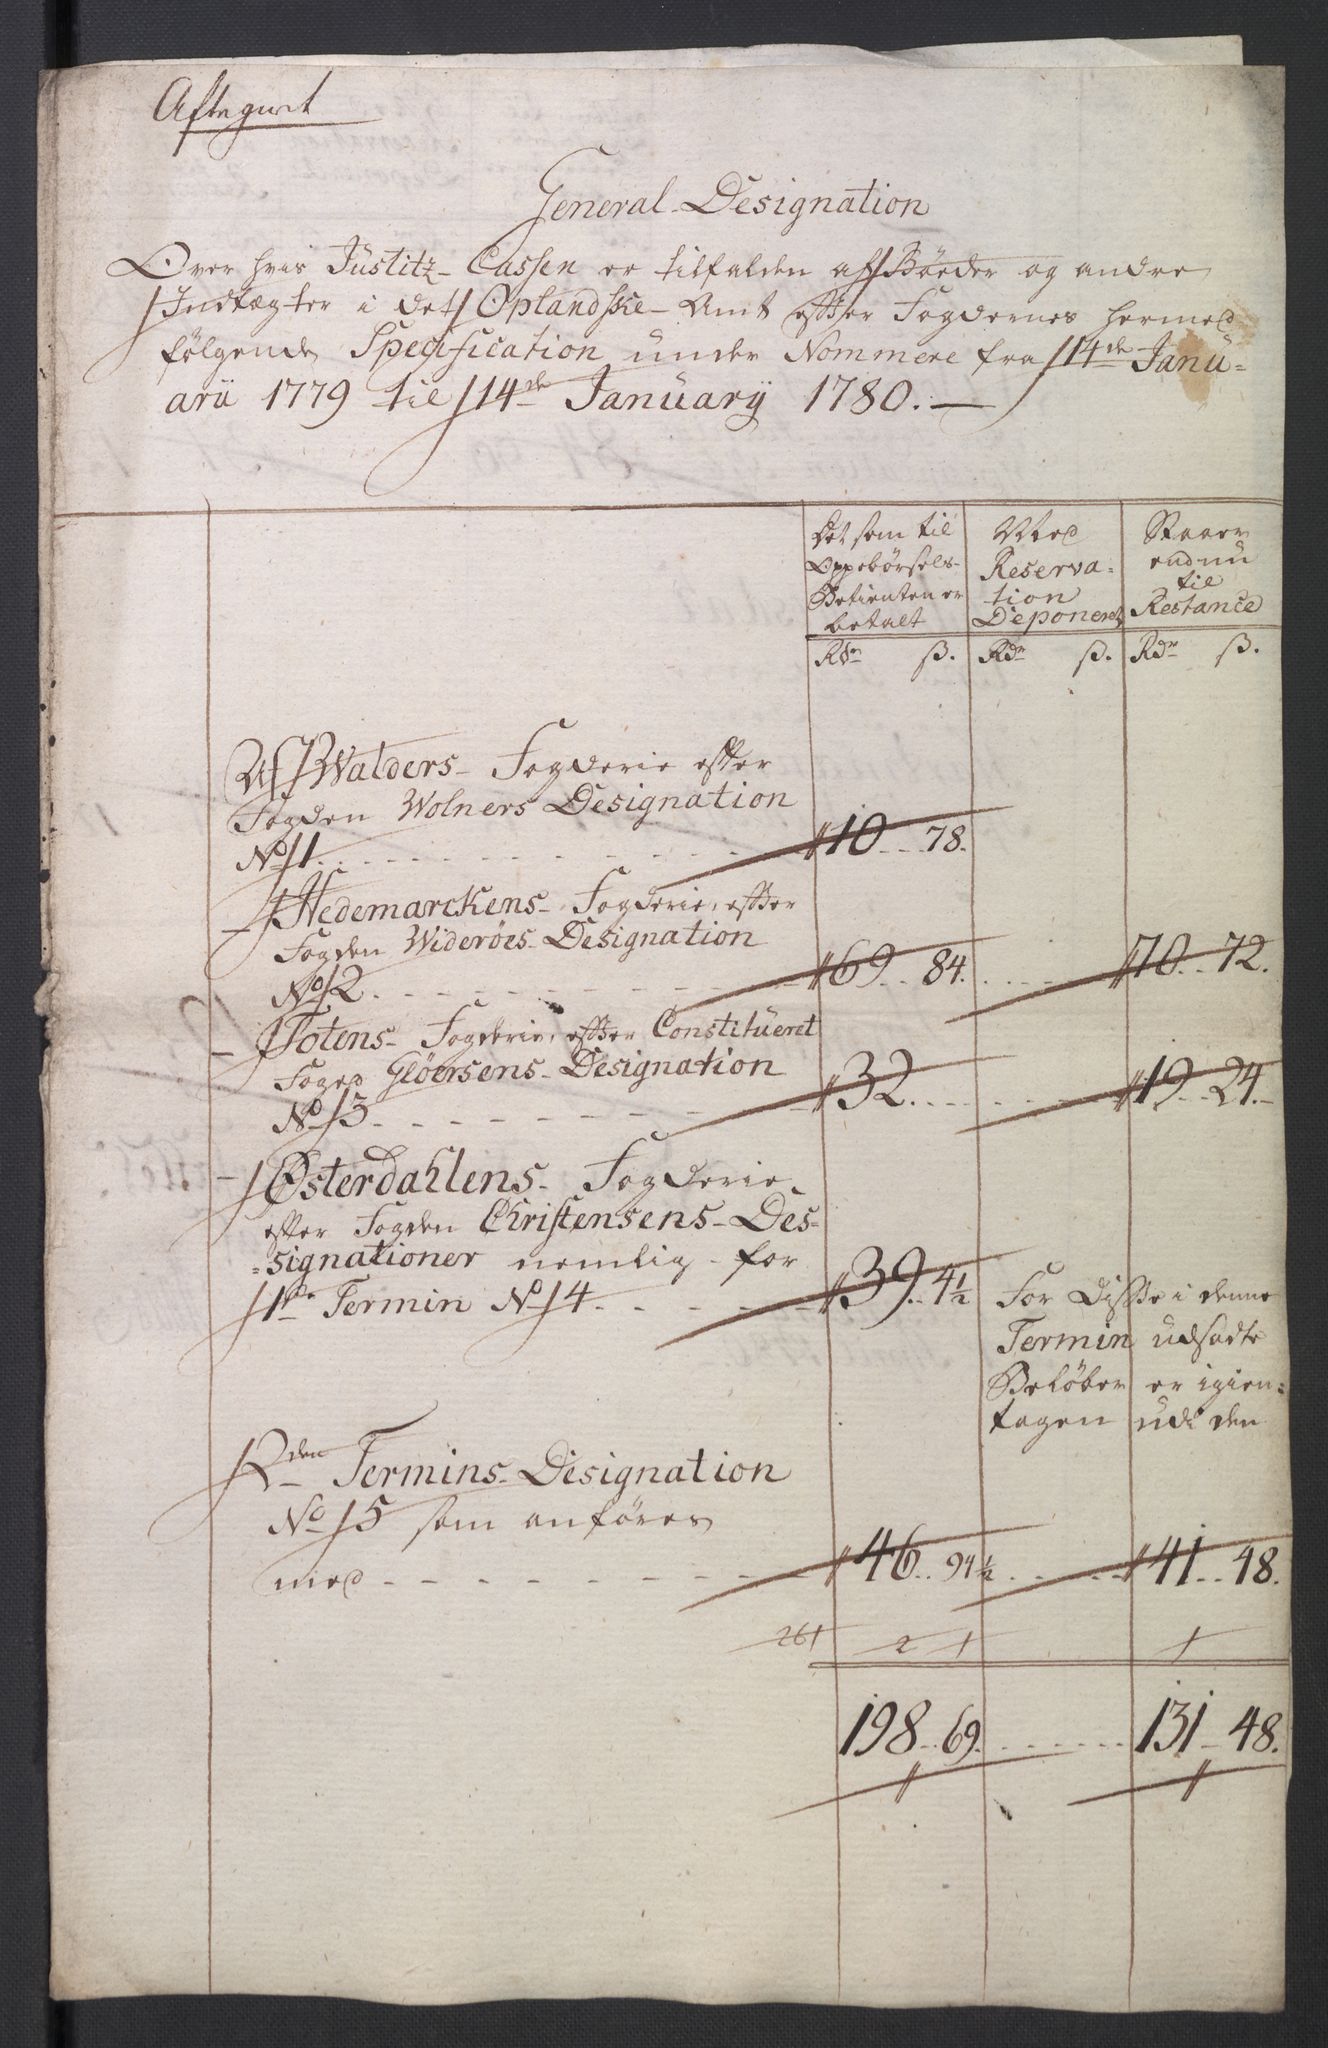 Aftegnet
General-Designation
Over hvis Justitz-Cassen er tilfalden af Böeder og andre
Indtægter i det Oplandske-Amt efter Fogdernes hermed
følgende Specification under Nommere fra 14de Janu-
arii 1779 til 14de Januarij 1780.
Det som til Oppebörsels-Betienten er betalt
Med Reserva-tion Deponeret
Staaer endnu til Restance
Rdr ß. Rdr ß. Rdr ß.
Af Walders-Fogderie efter
Fogden Wolners Designation
No 1. 10 78.
- Hedemarckens-Fogderie, efter
Fogden Wideröes-Designation
No 2. 69 84. 70 72.
- Totens-Fogderie, efter Constitueret
Foged Glöersens-Designation
No 3. 32. 19 24.
- Østerdahlens-Fogderie
efter Fogden Christensens-Des-
signationer nemlig for
1ste Termin No 4. 39. 4½
For Disse i denne
Termin udsadte
Belöber er igien-
tagen udi den
2den Termins-Designation
No 5 som anføres
med 46 94½ 41 48.
261 2 1 1
198 69. 131 48.